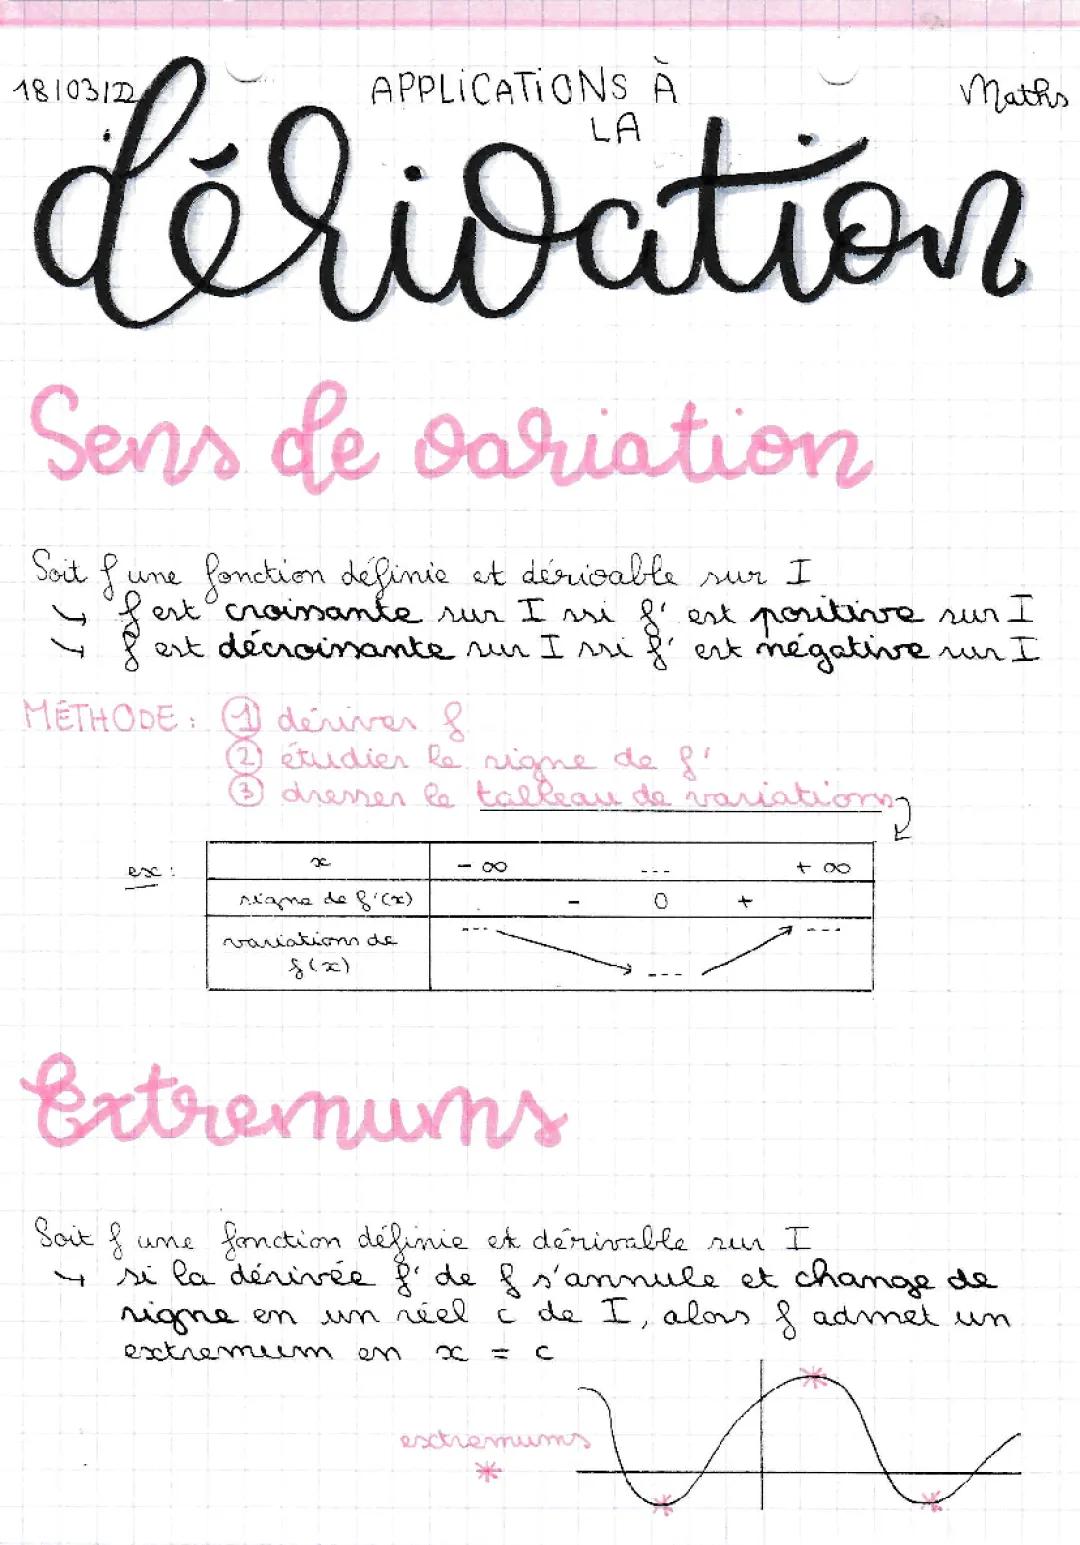 18/03/22 APPLICATIONS À LA Maths
dérivation
Sens de variation
Soit f une fonction définie et dérivable sur I
↳ f est croissante sur I ssi f' est positive sur I
↳ f est décroissante sur I ssi f' est négative sur I
MÉTHODE : ① dériver f
② étudier le signe de f'
③ dresser le tableau de variations
ex : x - ∞ --- + ∞
signe de f'(x) - 0 +
variations de f(x) --- --- ---
Extremums
Soit f une fonction définie et dérivable sur I
↳ si la dérivée f' de f s'annule et change de
signe en un réel c de I, alors f admet un
extremum en x = c
extremums
*